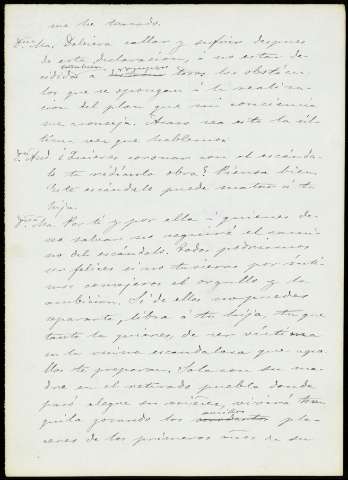 me he tomado.
Dña Ma. Debiera callar y sufrir despues
de esta declaracion, á no estar de-
cidida á
todos los obstácu-
los que se opongan á la realiza-
cion del plan que mi conciencia
me aconseja. Acaso sea esta la úl-
tima vez que hablemos.
Dn And ¿Quieres coronar con el escánda-
lo tu redentora obra? Piensa bien
Este escándalo puede matar á tu
hija.
Dña Ma Por ti y por ella á quienes de-
seo salvar no seguiré el cami-
no del escándalo. Todos podriamos
ser felices si no tuvieras por ínti-
mos consejeros el orgullo y la
ambicion. Si de ellos no puedes
separarte, libra á tu hija, ya que
tanto la quieres, de ser víctima
en la ruina escandalosa que aque-
llos te preparan. Sola con su ma-
dre en el retirado pueblo donde
pasó alegre su niñez, vivirá tran-
quila gozando los
sencillos
pla-
ceres de los primeros años de su